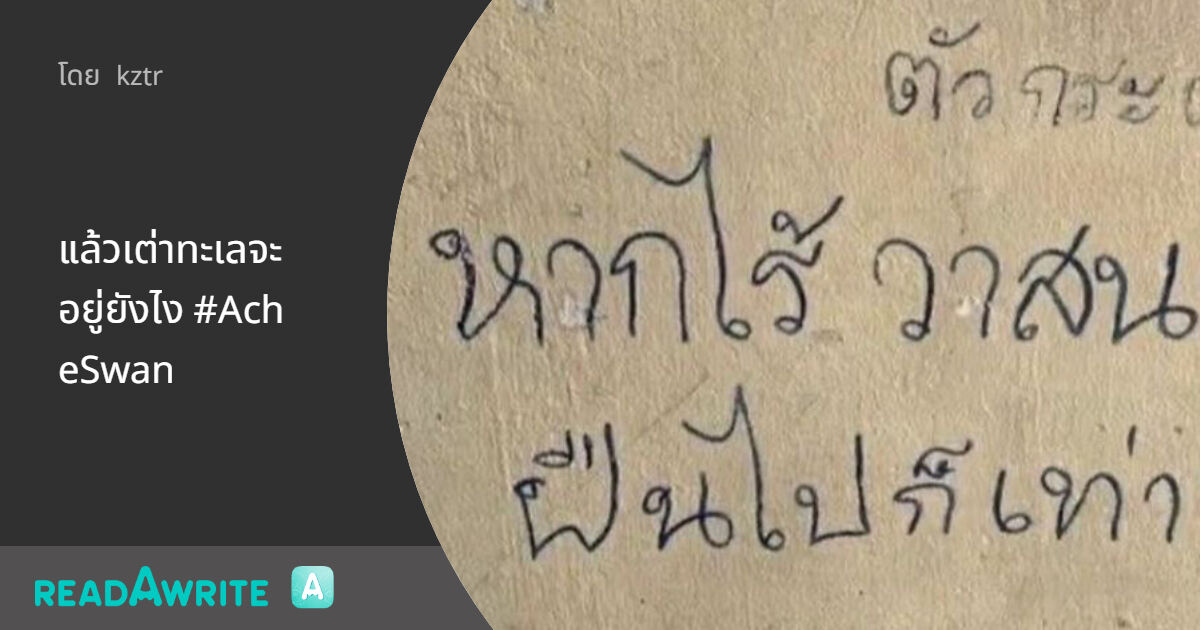 โดย kztr
แล้วเต่าทะเลจะ
อยู่ยังไง #Ach
eSwan
READAWRITE A
ตัว กระ
หากไร้ วาสน
ฝืนไปก็เท่า